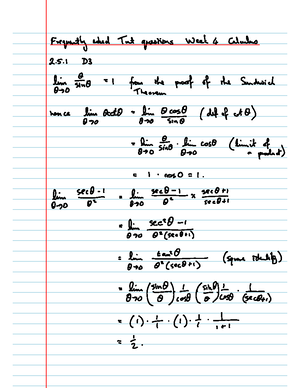 Frequently asked Tut questions Week 6 Calculus
2.5.1 D3
lim θ→0 θ/sinθ = 1 from the proof of the Sandwich
Theorem
hence lim θ→0 θcotθ = lim θ→0 θcosθ/sinθ (def of cot θ)
= lim θ→0 θ/sinθ · lim θ→0 cosθ (limit of a product)
= 1 · cos0 = 1.
lim θ→0 secθ-1/θ² = lim θ→0 secθ-1/θ² × secθ+1/secθ+1
= lim θ→0 sec²θ-1/θ²(secθ+1)
= lim θ→0 tan²θ/θ²(secθ+1) (square identity)
= lim θ→0 (sinθ/θ) 1/cosθ (sinθ/θ) 1/cosθ · 1/(secθ+1)
= (1) · 1/1 · (1) · 1/1 · 1/1+1
= 1/2.